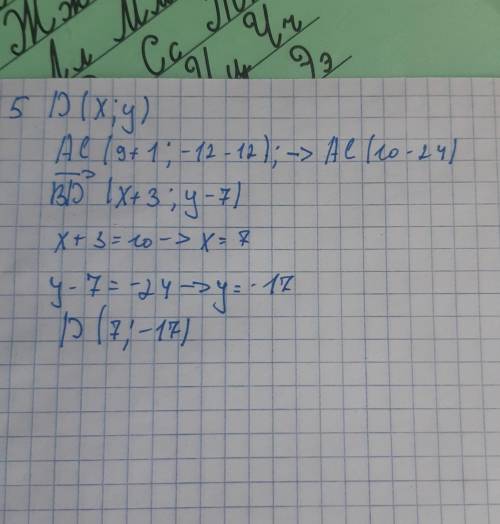 Жж Мм
Лл Сс Чч
Цц Ээ
5 D(x;y)
AC (9+1; -12-12); -> AC (10-24)
BD (x+3; y-7)
x+3=10 -> x=7
y-7=-24 -> y=-17
D(7; -17)